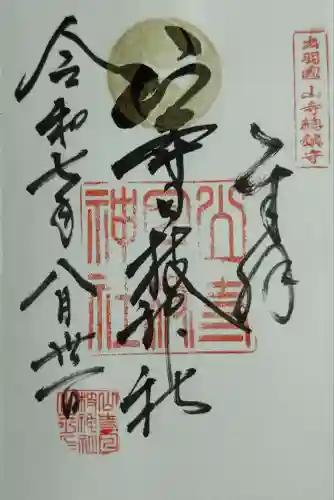 出羽國山寺總鎮守
奉拝
山寺日枝神社
山寺日枝神社
令和七年八月廿一日